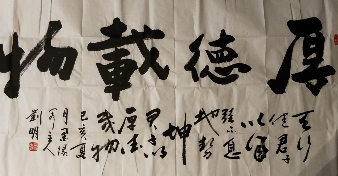 厚德載物
天行
健君子
以自强
不息
地勢
坤
君子以
厚德
載物
己亥夏
月
劉明